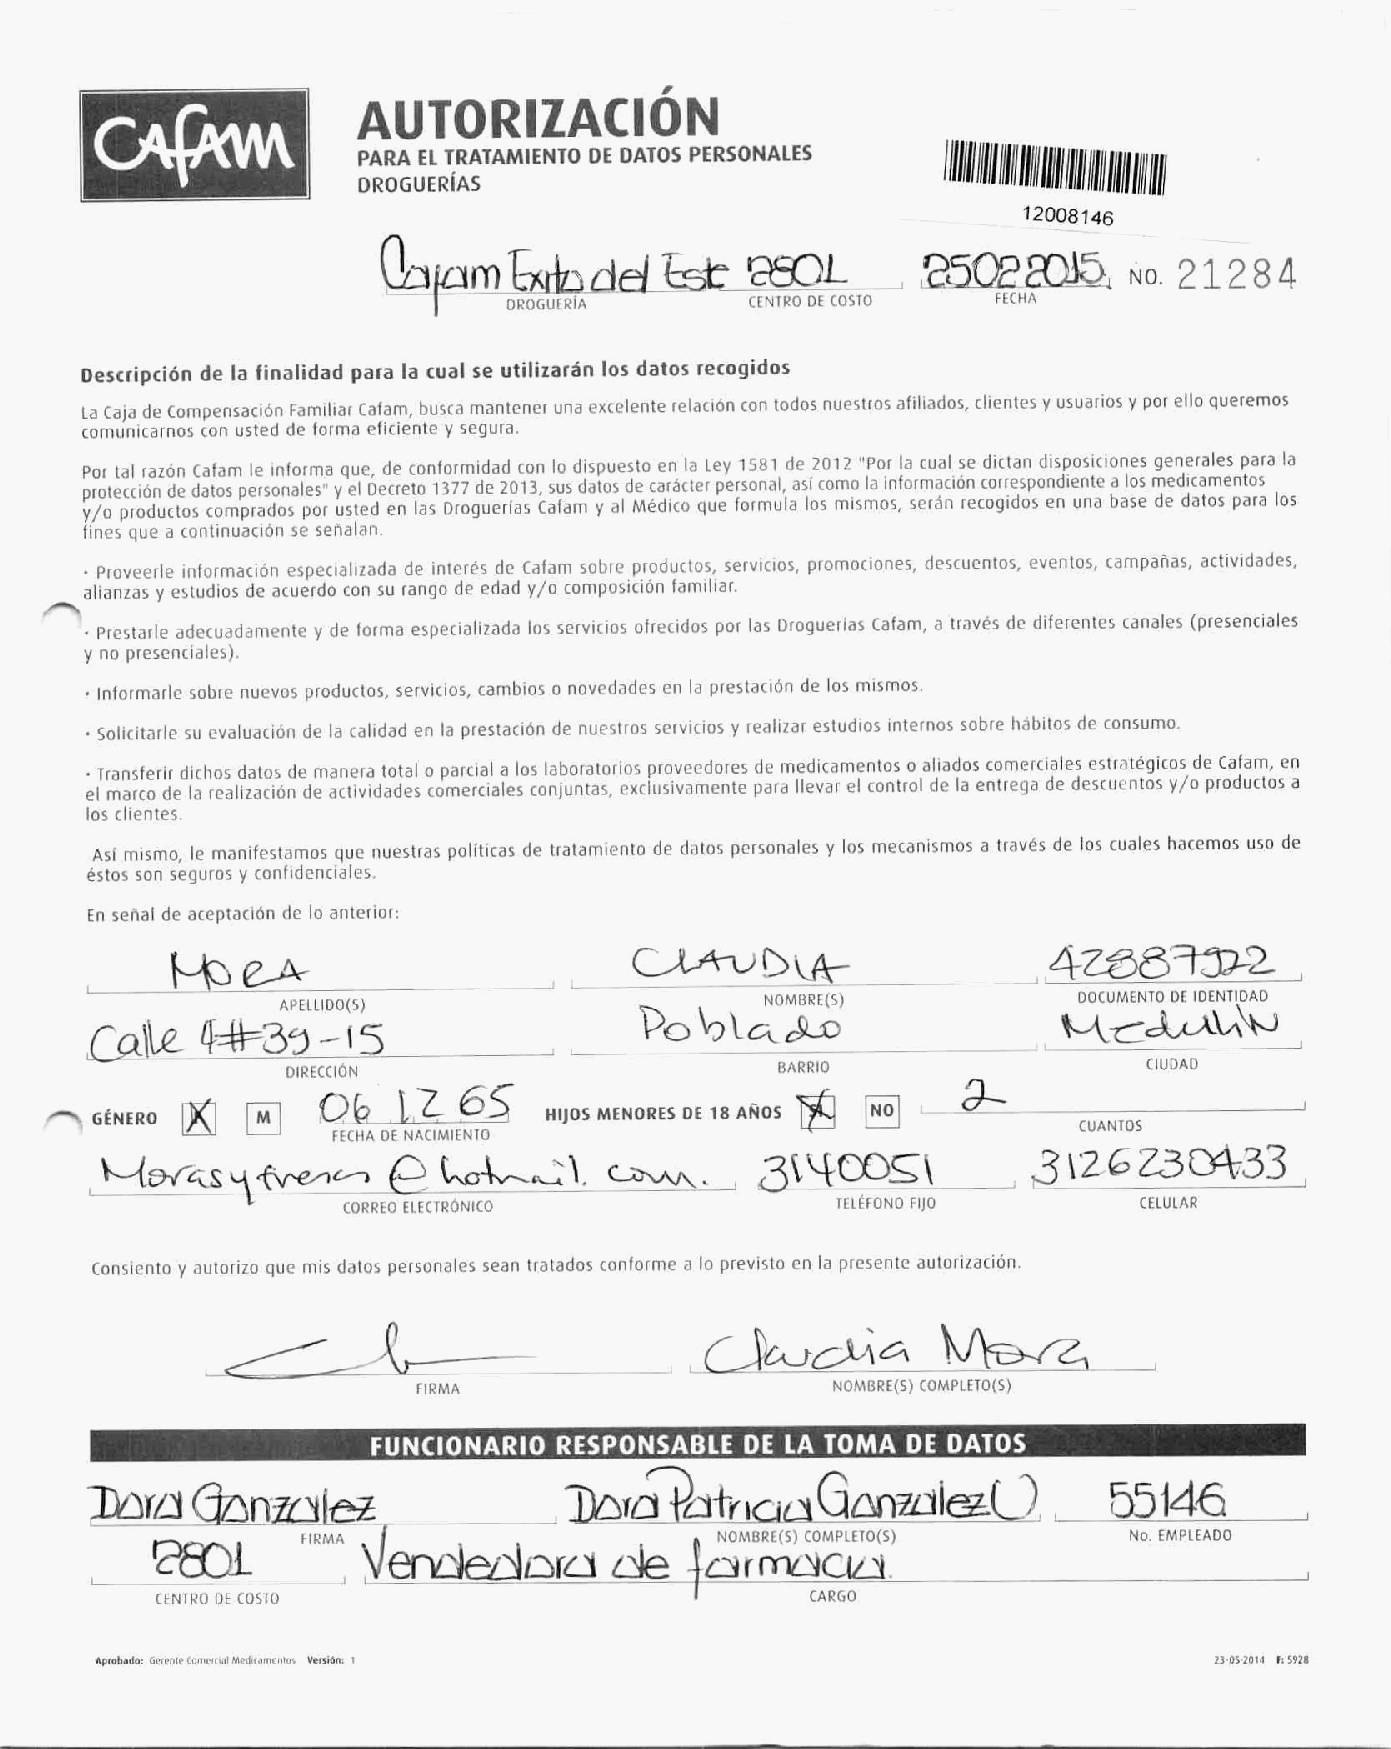 CAFAM
AUTORIZACIÓN
PARA EL TRATAMIENTO DE DATOS PERSONALES
DROGUERÍAS
12008146
Cafam Exito del Este 280L 25022015 NO. 21284
DROGUERÍA CENTRO DE COSTO FECHA
Descripción de la finalidad para la cual se utilizarán los datos recogidos
La Caja de Compensación Familiar Cafam, busca mantener una excelente relación con todos nuestros afiliados, clientes y usuarios y por ello queremos
comunicarnos con usted de forma eficiente y segura.
Por tal razón Cafam le informa que, de conformidad con lo dispuesto en la Ley 1581 de 2012 "Por la cual se dictan disposiciones generales para la
protección de datos personales" y el Decreto 1377 de 2013, sus datos de carácter personal, así como la información correspondiente a los medicamentos
y/o productos comprados por usted en las Droguerías Cafam y al Médico que formula los mismos, serán recogidos en una base de datos para los
fines que a continuación se señalan.
· Proveerle información especializada de interés de Cafam sobre productos, servicios, promociones, descuentos, eventos, campañas, actividades,
alianzas y estudios de acuerdo con su rango de edad y/o composición familiar.
· Prestarle adecuadamente y de forma especializada los servicios ofrecidos por las Droguerías Cafam, a través de diferentes canales (presenciales
y no presenciales).
· Informarle sobre nuevos productos, servicios, cambios o novedades en la prestación de los mismos.
· Solicitarle su evaluación de la calidad en la prestación de nuestros servicios y realizar estudios internos sobre hábitos de consumo.
· Transferir dichos datos de manera total o parcial a los laboratorios proveedores de medicamentos o aliados comerciales estratégicos de Cafam, en
el marco de la realización de actividades comerciales conjuntas, exclusivamente para llevar el control de la entrega de descuentos y/o productos a
los clientes.
Así mismo, le manifestamos que nuestras políticas de tratamiento de datos personales y los mecanismos a través de los cuales hacemos uso de
éstos son seguros y confidenciales.
En señal de aceptación de lo anterior:
MORA CLAUDIA 42887922
APELLIDO(S) NOMBRE(S) DOCUMENTO DE IDENTIDAD
Calle 4#39-15 Poblado Medellín
DIRECCIÓN BARRIO CIUDAD
GÉNERO M 06 12 65 HIJOS MENORES DE 18 AÑOS NO 2
FECHA DE NACIMIENTO CUANTOS
Morasyfresas@hotmail.com. 3140051 3126230433
CORREO ELECTRÓNICO TELÉFONO FIJO CELULAR
Consiento y autorizo que mis datos personales sean tratados conforme a lo previsto en la presente autorización.
Claudia Mora
FIRMA NOMBRE(S) COMPLETO(S)
FUNCIONARIO RESPONSABLE DE LA TOMA DE DATOS
Dora Gonzalez Dora Patricia Gonzalez U 55146
FIRMA NOMBRE(S) COMPLETO(S) No. EMPLEADO
280L Vendedora de farmacia.
CENTRO DE COSTO CARGO
Aprobado: Gerente Comercial Medicamentos Versión: 1 23-05-2014 F: 5928